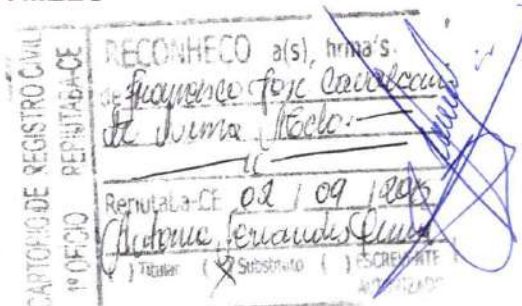 CARTORIO DE REGISTRO CIVIL
1º OFICIO RERIUTABA-CE
RECONHECO a(s) firma's
de Francisco Jose Cavalcanti
de Melo
Reriutaba-CE 02 / 09 /
Antonia Fernandes
( ) Titular (X) Substituto ( ) ESCREVENTE
AUTORIZADO